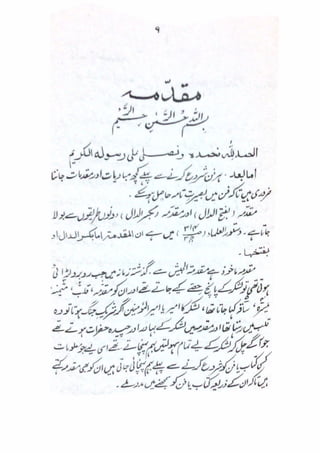 ۹
مقدّمہ
بسم اللہ الرحمن الرحیم
الحمد للہ نحمدہ و نصلی علی رسولہ الکریم
اما بعد۔ ہر فن شروع کرنے سے پہلے کچھ مبادیات اور مقدمات جاننا
ضروری ہیں تاکہ فن میں بصیرت تامہ حاصل ہو سکے۔
مقدمہ (بفتح الدال) اور مقدمہ (بکسر الدال) دونوں طریقوں سے بولا
جاتا ہے۔ دستور العلماء میں ہے ان المقدمة اما بکسر الدال او
بفتحہا۔
مقدمہ ماخوذ ہے مقدمۃ الجیش سے، گذشتہ زمانہ میں جب روبرو لڑائی
ہوتی تھی تو لشکر کے پانچ حصے کیے جاتے تھے اور ان کو مقدمہ، قلب، میمنہ
میسرہ، ساقہ کہا جاتا تھا، لشکر کا امیر یا امیر المؤمنین اگر شریک جنگ ہوتا تو وہ
قلب میں رہتا تھا اور مقدمہ میں لشکر کے بہادر اور چیدہ حضرات ہوتے تھے
جو آگے چل کر لشکر کے لیے تمام سہولتیں بہم پہنچاتے تھے اسی لیے جو معلومات
کسی کتاب یا فن کو شروع کرنے سے پہلے بہم پہنچائی جاتی ہیں ان کو بھی مقدمہ کہتے
ہیں تاکہ ان کے ذریعہ کتاب یا فن کو سمجھنے میں مدد ملے۔